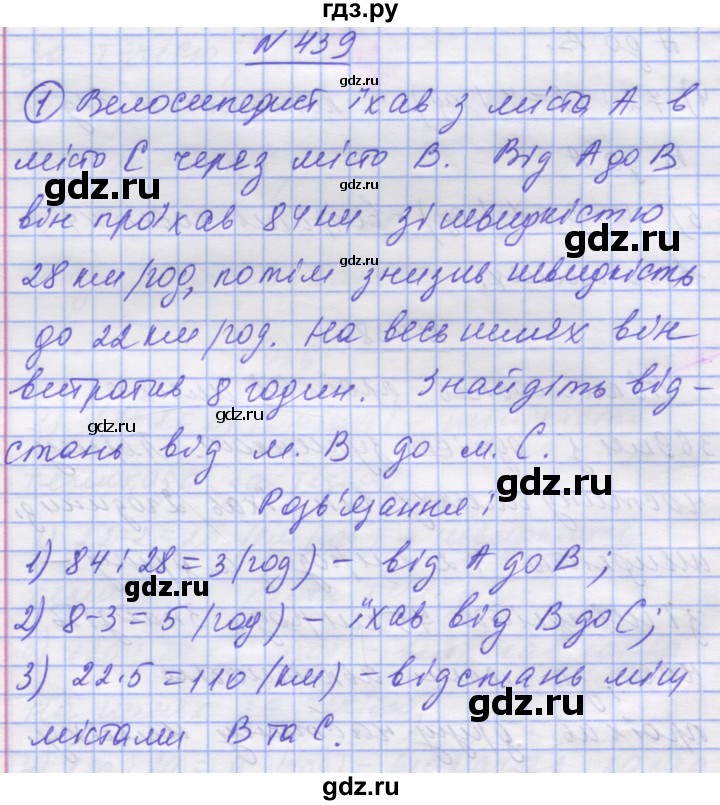 гдз.ру
N 439
① Велосипедист їхав з міста А в
місто С через місто В. Від А до В
він проїхав 84 км зі швидкістю
28 км/год, потім знизив швидкість
до 22 км/год. На весь шлях він
витратив 8 годин. Знайдіть від-
стань від м. В до м. С.
Розв'язання:
1) 84 : 28 = 3 (год) - від А до В;
2) 8 - 3 = 5 (год) - їхав від В до С;
3) 22·5 = 110 (км) - відстань між
містами В та С.
gdz.ru
gdz.ru
gdz.ru
gdz.ru
gdz.ru
gdz.ru
gdz.ru
gdz.ru
gdz.ru
gdz.ru
gdz.ru
gdz.ru
gdz.ru